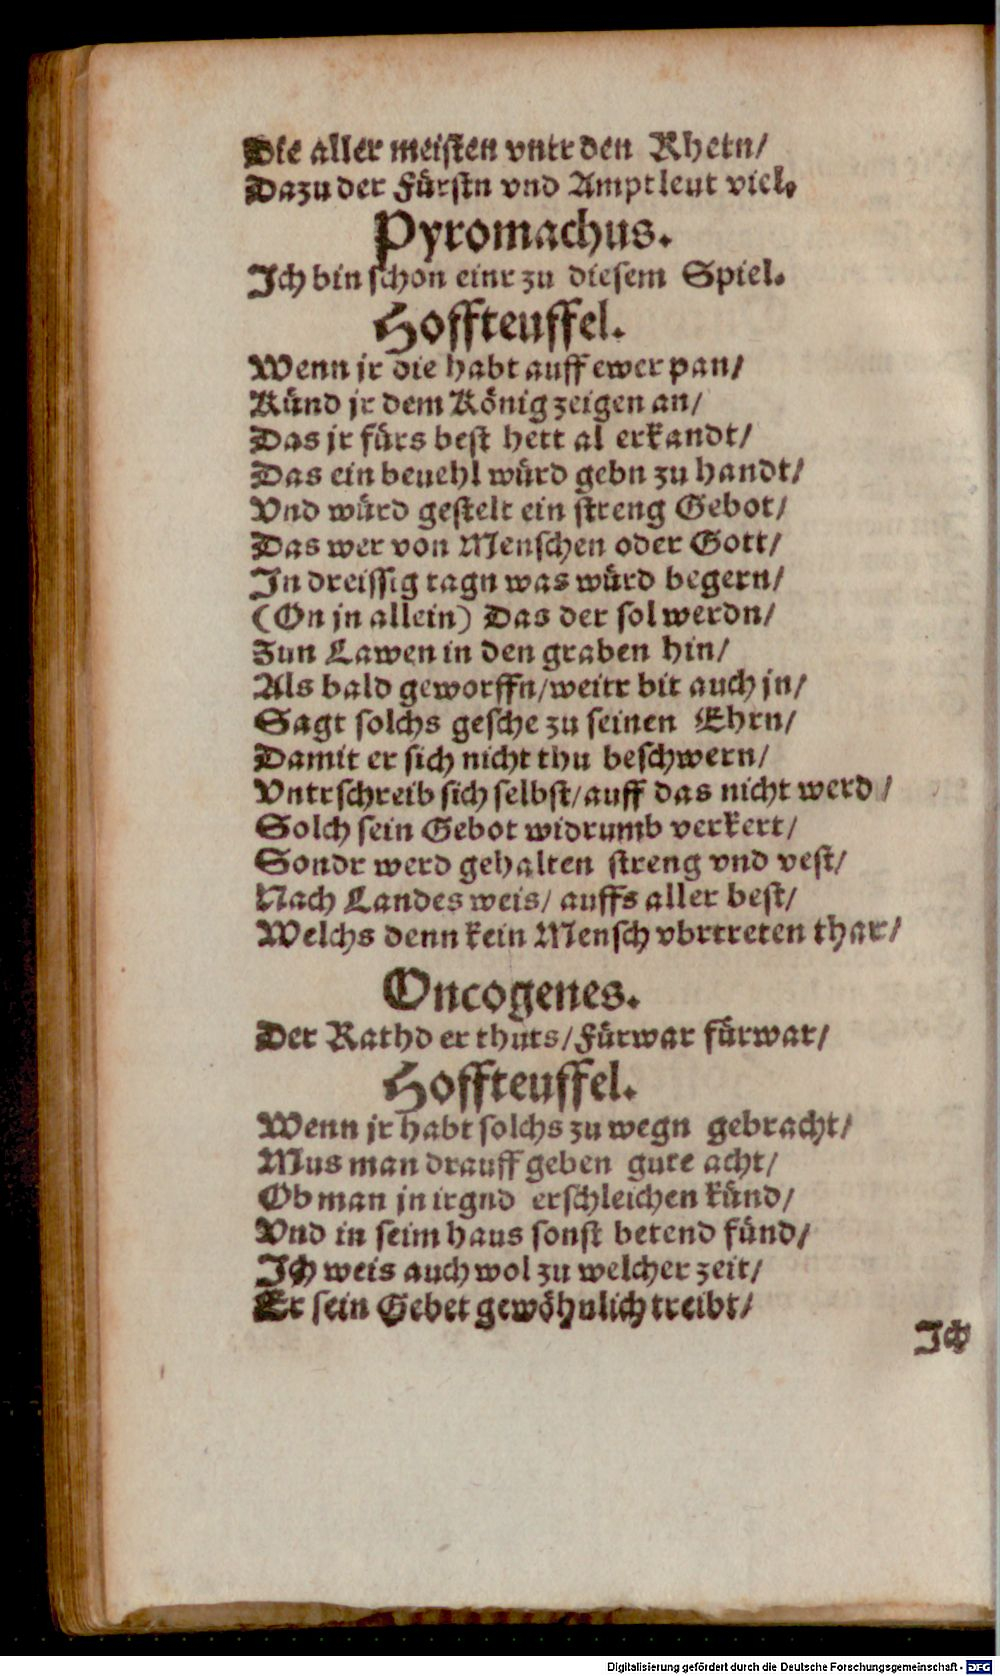 Die aller meisten vntr den Rhetn/
Dazu der Fürstn vnd Amptleut viel.
Pyromachus.
Ich bin schon einr zu diesem Spiel.
Hoffteuffel.
Wenn jr die habt auff ewer pan/
Künd jr dem König zeigen an/
Das jr fürs best hett al erkandt/
Das ein beuehl würd gebn zu handt/
Vnd würd gestelt ein streng Gebot/
Das wer von Menschen oder Gott/
In dreissig tagn was würd begern/
(On jn allein) Das der sol werdn/
Zun Lawen in den graben hin/
Als bald geworffn/weitr bit auch jn/
Sagt solchs gesche zu seinen Ehrn/
Damit er sich nicht thu beschwern/
Vntrschreib sich selbst/auff das nicht werd/
Solch sein Gebot widrumb verkert/
Sondr werd gehalten streng vnd vest/
Nach Landes weis/ auffs aller best/
Welchs denn kein Mensch vbrtreten thar/
Oncogenes.
Der Rathd er thuts/Fürwar fürwar/
Hoffteuffel.
Wenn jr habt solchs zu wegn gebracht/
Mus man drauff geben gute acht/
Ob man jn irgnd erschleichen künd/
Vnd in seim haus sonst betend fünd/
Ich weis auch wol zu welcher zeit/
Er sein Gebet gewöhnlich treibt/
Ich
Digitalisierung gefördert durch die Deutsche Forschungsgemeinschaft - DFG